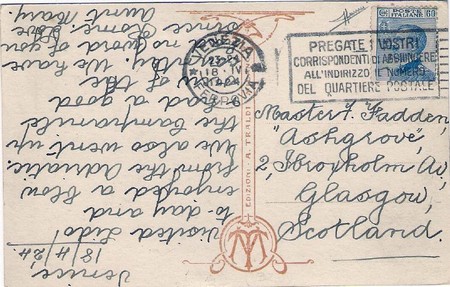 Venice,
18/4/24
Visited Lido
to-day and
enjoyed a blow
from the Adriatic.
also went up
the Campanile
had a good
of the
We have
no word of you
since Rome. Love
Aunt Mary
POSTE ITALIANE
60
VENEZIA
23-24
18 IV
FERROVIA
PREGATE I VOSTRI
CORRISPONDENTI DI AGGIUNGERE
ALL'INDIRIZZO IL NUMERO
DEL QUARTIERE POSTALE
Master J. Fadden,
"Ashgrove"
2, Ibroxholm Av,
Glasgow,
Scotland.
EDIZIONI A. TRALDI